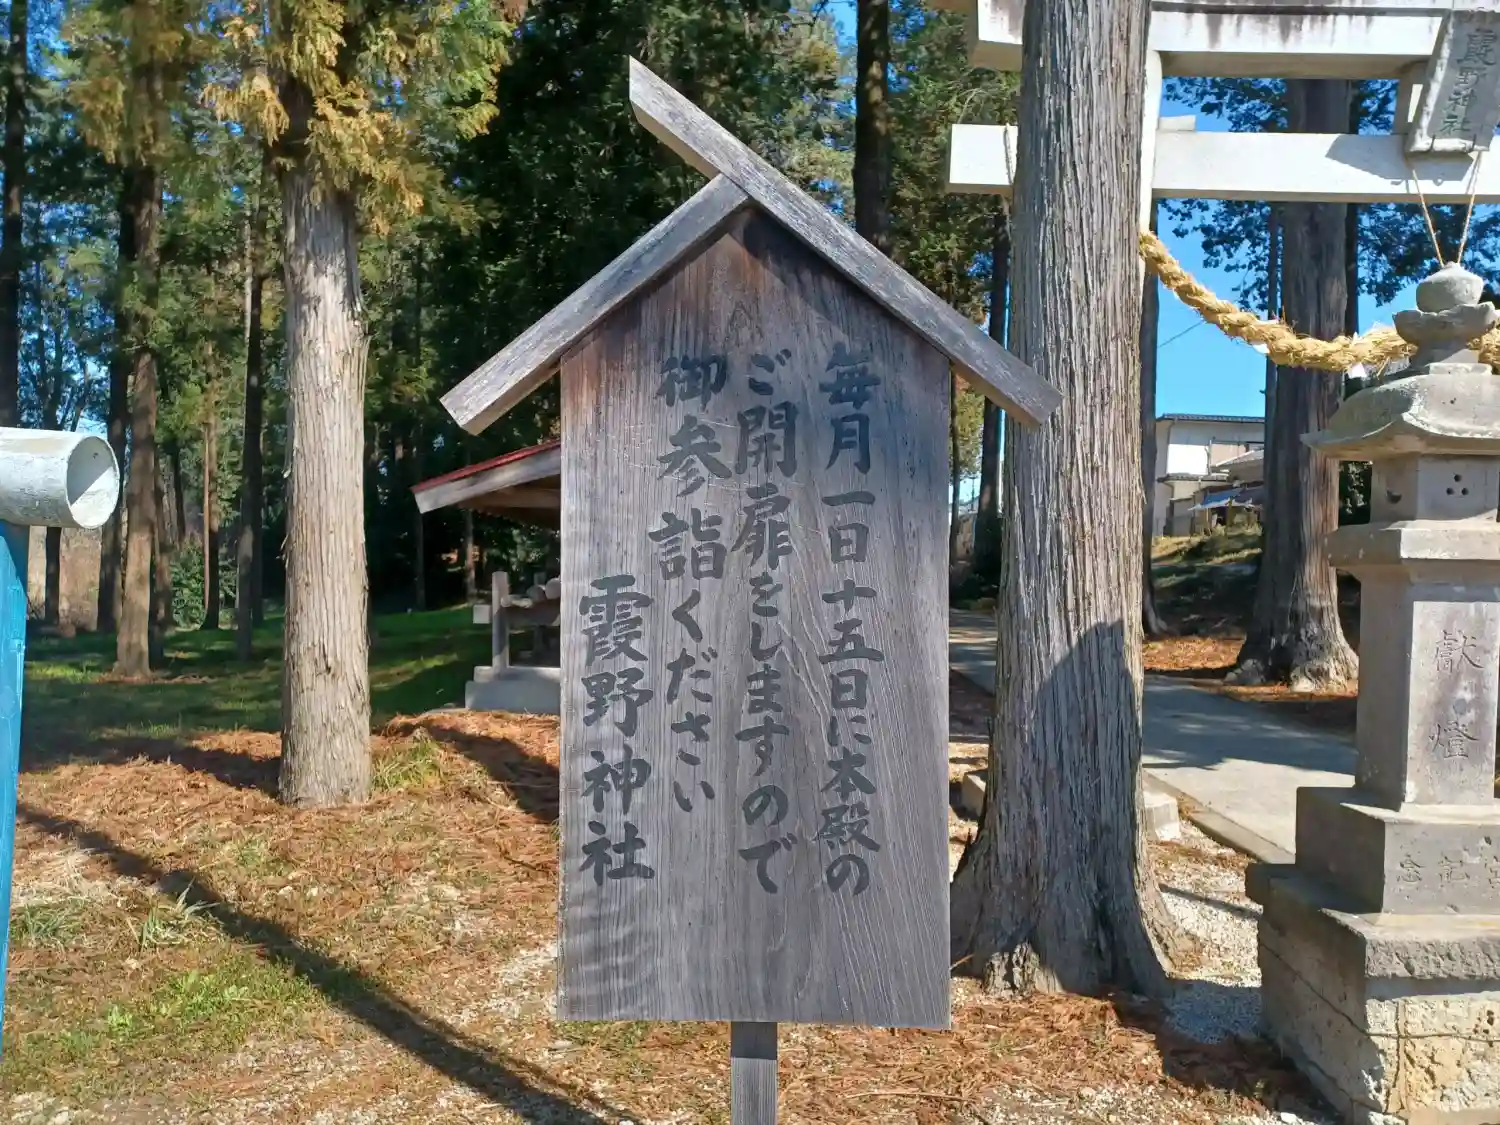 毎月一日十五日に本殿の
ご開扉をしますので
御参詣ください
霞野神社
霞野神社
献燈
宮記念